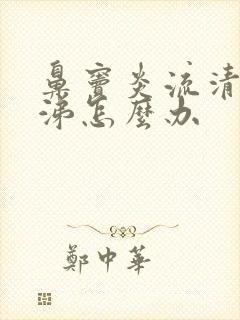 鼻窦炎流清
涕怎麼办
鄭中華